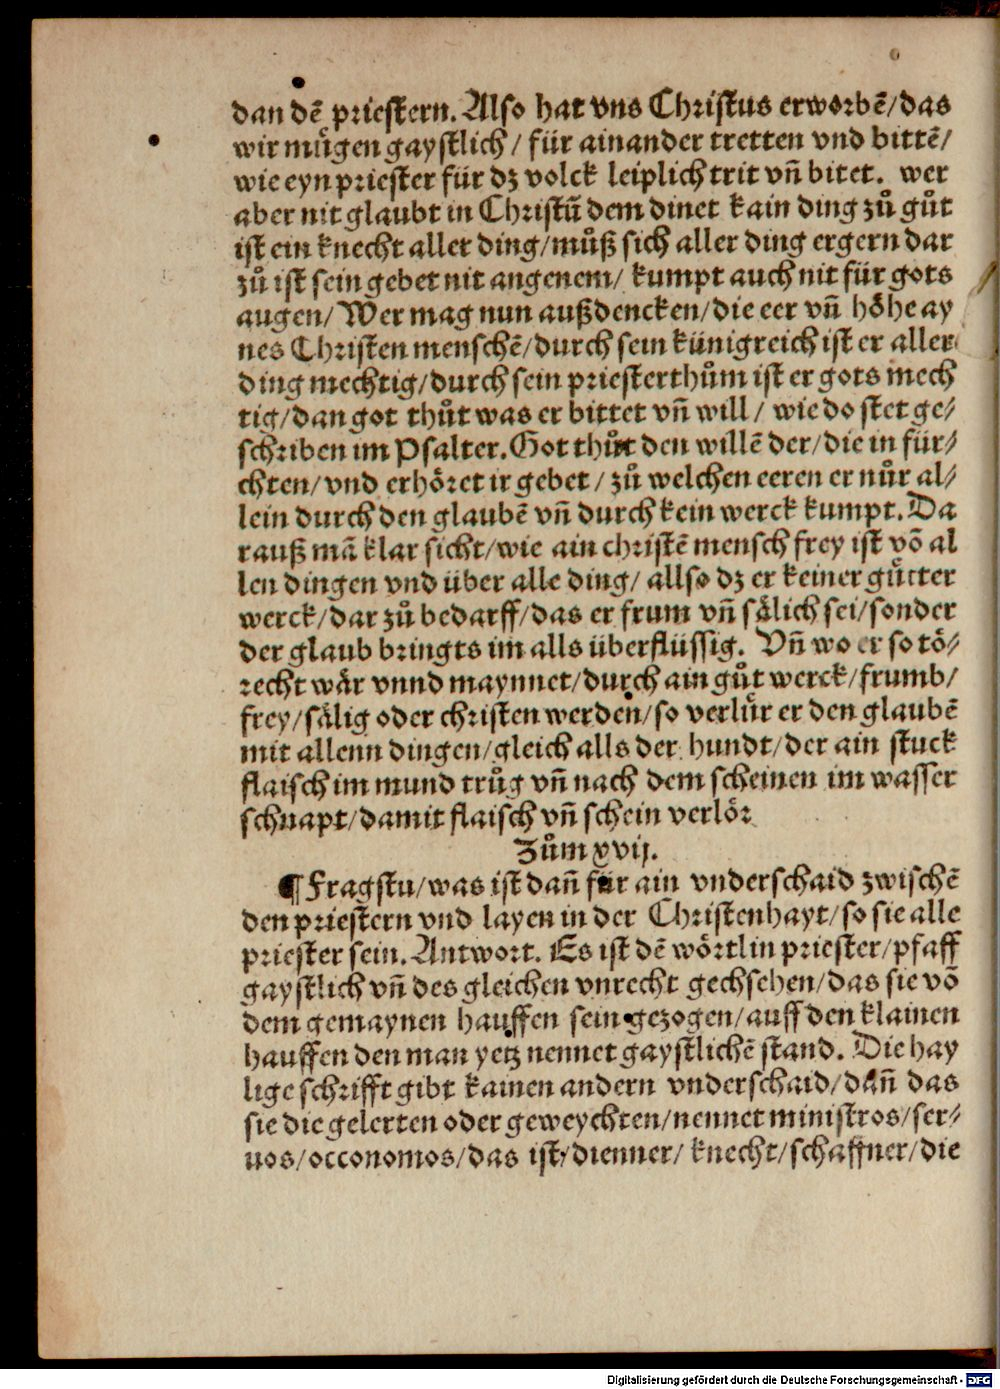 dan dē priestern. Also hat vns Christus erworbē/das
wir muͤgen gaystlich/ für ainander tretten vnd bittē/
wie eyn priester für dz volck leiplich trit vn̄ bitet. wer
aber nit glaubt in Christū dem dinet kain ding zuͦ guͦt
ist ein knecht aller ding/muͦß sich aller ding ergern dar
zuͦ ist sein gebet nit angenem/ kumpt auch nit für gots
augen/ Wer mag nun außdencken/die eer vn̄ hoͤhe ay
nes Christen menschē/durch sein künigreich ist er aller
ding mechtig/durch sein priesterthuͦm ist er gots mech
tig/dan got thuͦt was er bittet vn̄ will/ wie do stet ge⸗
schriben im Psalter. Got thuͦt den willē der/die in für⸗
chten/vnd erhoͤret ir gebet/ zuͦ welchen eeren er nuͦr al⸗
lein durch den glaubē vn̄ durch kein werck kumpt. Da
rauß mā klar sicht/wie ain christē mensch frey ist vō al
len dingen vnd über alle ding/ allso dz er keiner guͤtter
werck/dar zuͦ bedarff/das er frum vn̄ saͤlich sei/sonder
der glaub bringts im alls überflüssig. Vn̄ wo er so toͤ⸗
recht waͤr vnnd maynnet/durch ain guͦt werck/frumb/
frey/saͤlig oder christen werden/so verluͤr er den glaubē
mit allenn dingen/gleich alls der hundt/der ain stuck
flaisch im mund truͦg vn̄ nach dem scheinen im wasser
schnapt/damit flaisch vn̄ schein verloͤr
Zuͦm xvij.
¶ Fragstu/was ist dan̄ für ain vnderschaid zwischē
den priestern vnd layen in der Christenhayt/so sie alle
priester sein. Antwort. Es ist dē woͤrtlin priester/pfaff
gaystlich vn̄ des gleichen vnrecht gechsehen/das sie vō
dem gemaynen hauffen sein gezogen/auff den klainen
hauffen den man yetz nennet gaystlichē stand. Die hay
lige schrifft gibt kainen andern vnderschaid/dan̄ das
sie die gelerten oder geweychten/nennet ministros/ser⸗
uos/occonomos/das ist/dienner/ knecht/schaffner/die
Digitalisierung gefördert durch die Deutsche Forschungsgemeinschaft - DFG